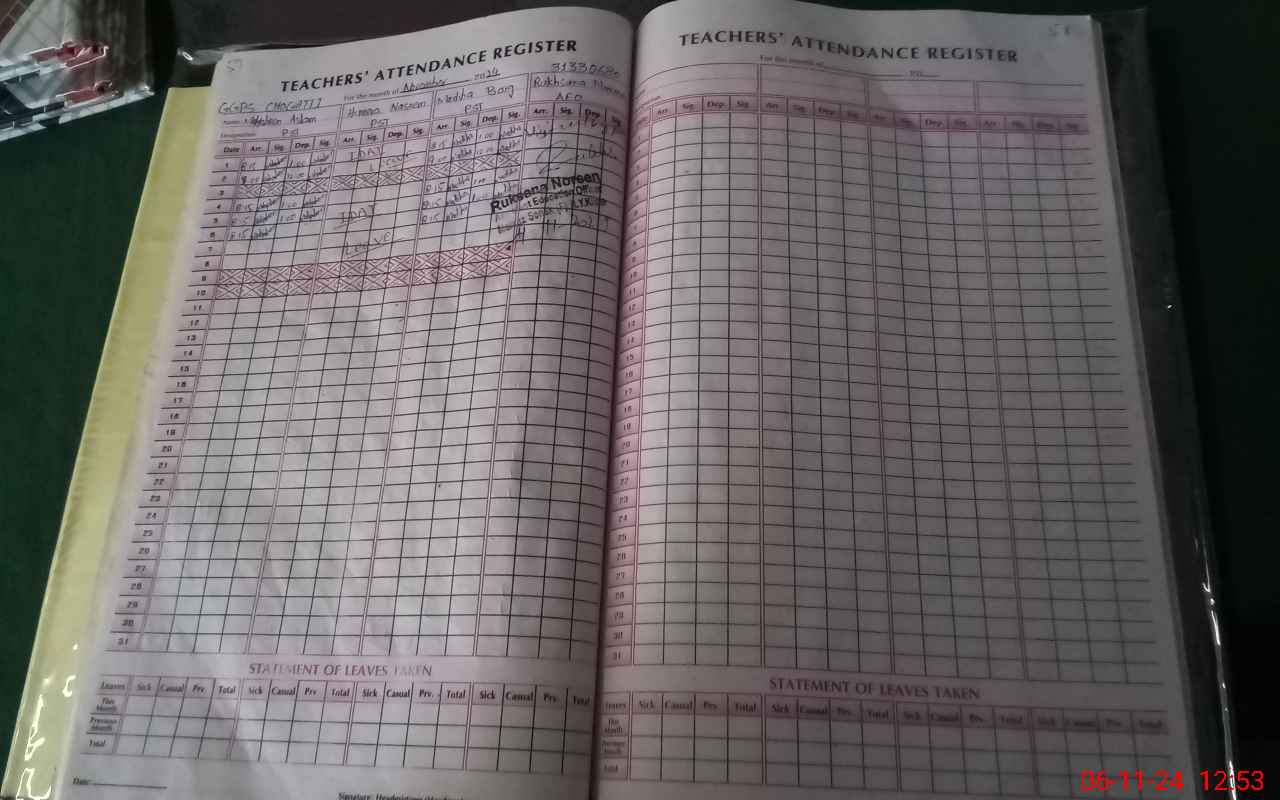 57
TEACHERS' ATTENDANCE REGISTER
For the month of November 2024
31330680
GGPS
Name
Aslam
Humna Nasreen
Madiha
Rukhsana
Designation PST
PST
PST
AEO
Date Arr. Sig. Dep. Sig. Arr. Sig. Dep. Sig. Arr. Sig. Dep. Sig. Arr. Sig. Dep. Sig.
1 8:15 1:00 IDAT 8:15 1:00
2 8:00 1:00
3
4 8:15 1:00 8:15 1:00
5 8:15 1:00 IDAT 8:15
6 8:15 Leave
7
8
9
10
11
12
13
14
15
16
17
18
19
20
21
22
23
24
25
26
27
28
29
30
31
Ruksana Noreen
Education Officer
STATEMENT OF LEAVES TAKEN
Leaves Sick Casual Prv. Total Sick Casual Prv. Total Sick Casual Prv. Total Sick Casual Prv. Total
This Month
Previous Month
Total
Date:
TEACHERS' ATTENDANCE REGISTER
For the month of
Arr. Sig. Dep. Sig. Arr. Sig. Dep. Sig. Arr. Sig. Dep. Sig. Arr. Sig. Dep. Sig.
1
2
3
4
5
6
7
8
9
10
11
12
13
14
15
16
17
18
19
20
21
22
23
24
25
26
27
28
29
30
31
STATEMENT OF LEAVES TAKEN
Leaves Sick Casual Prv. Total Sick Casual Prv. Total Sick Casual Prv. Total Sick Casual Prv. Total
This Month
Previous Month
Total
06-11-24 12:53